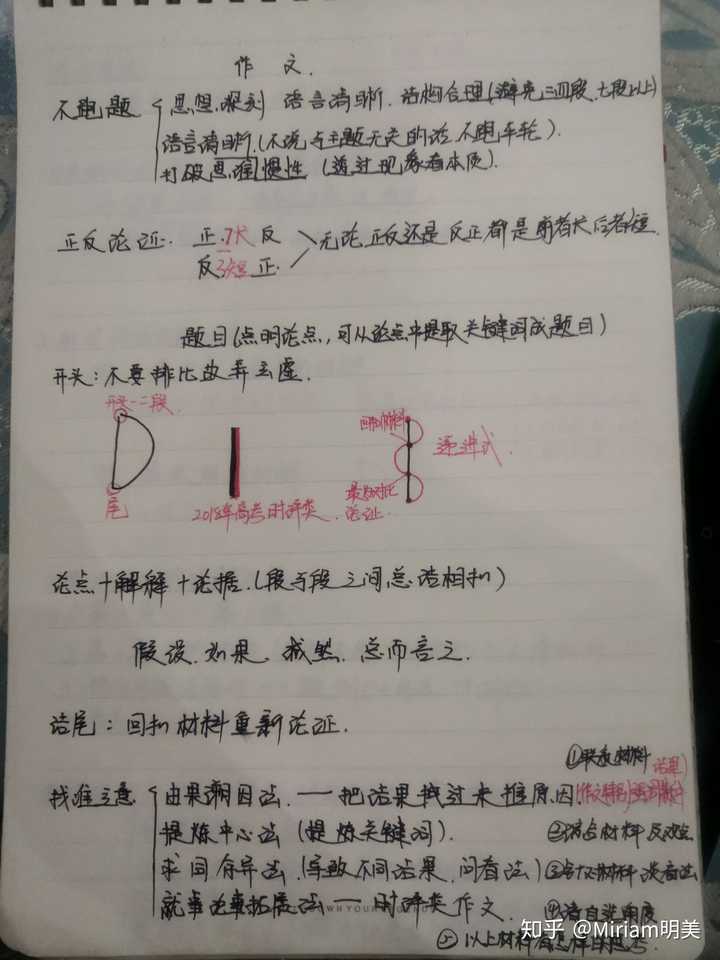 作 文.
不跑题 思想深刻 语言清晰. 结构合理(避免三四段.七段以上)
语言清晰.(不说与主题无关的话.不跑车轮).
打破思维惯性 (透过现象看本质).
正反论证. 正.长 反
反 短 正. 无论正反还是反正都是前者长后者短.
题目(点明论点,可从论点中提取关键词成题目)
开头:不要排比故弄玄虚.
开头一二段.
尾
2018年高考时评类.
回扣材料
递进式.
论证.
论点+解释+论据.(段与段之间总结相扣)
假设.如果. 诚然. 总而言之.
结尾:回扣材料重新论证.
①联系材料
找准立意 由果溯因法. 一 把结果找过来推原因 结果)
提炼中心法 (提炼关键词). ②结合材料
求同存异法.(导致不同结果.问看法) ③ 材料 谈看法
就事论事拓展法 — 时评类作文. ④请自选角度
⑤以上材料
知乎 @Miriam明美